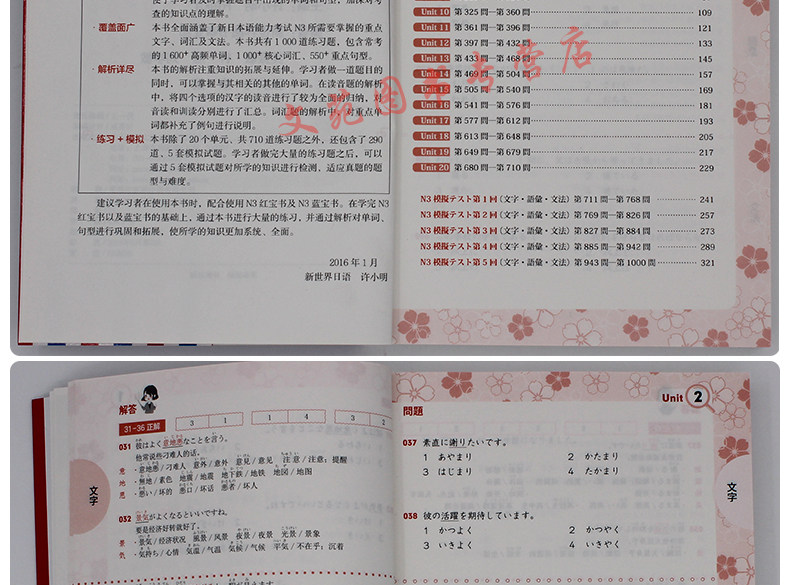 查的知识点的理解。
· 覆盖面广 本书全面涵盖了新日本语能力考试 N3 所需要掌握的重点
文字、词汇及文法。本书共有 1 000 道练习题，包含常考
的 1 600⁺ 高频单词、1 000⁺ 核心词汇、550⁺ 重点句型。
· 解析详尽 本书的解析注重知识的拓展与延伸。学习者做一道题目的
同时，可以掌握与其相关的其他的单词。在读音题的解析
中，将四个选项的汉字的读音进行了较为全面的归纳，对
音读和训读分别进行了汇总。词汇题的解析中，对重点单
词都补充了例句进行说明。
· 练习 + 模拟 本书除了 20 个单元、共 710 道练习题之外，还包含了 290
道、5 套模拟试题。学习者做完大量的练习题之后，可以
通过 5 套模拟试题对所学的知识进行检测，适应真题的题
型与难度。
建议学习者在使用本书时，配合使用 N3 红宝书及 N3 蓝宝书。在学完 N3
红宝书以及蓝宝书的基础上，通过本书进行大量的练习，并通过解析对单词、
句型进行巩固和拓展，使所学的知识更加系统、全面。
2016 年 1 月
新世界日语 许小明
Unit 10 第 325 問—第 360 問 109
Unit 11 第 361 問—第 396 問 121
Unit 12 第 397 問—第 432 問 133
Unit 13 第 433 問—第 468 問 145
Unit 14 第 469 問—第 504 問 157
Unit 15 第 505 問—第 540 問 169
Unit 16 第 541 問—第 576 問 181
Unit 17 第 577 問—第 612 問 193
Unit 18 第 613 問—第 648 問 205
Unit 19 第 649 問—第 679 問 217
Unit 20 第 680 問—第 710 問 229
N3 模擬テスト第 1 回（文字・語彙・文法）第 711 問—第 768 問 241
N3 模擬テスト第 2 回（文字・語彙・文法）第 769 問—第 826 問 257
N3 模擬テスト第 3 回（文字・語彙・文法）第 827 問—第 884 問 273
N3 模擬テスト第 4 回（文字・語彙・文法）第 885 問—第 942 問 289
N3 模擬テスト第 5 回（文字・語彙・文法）第 943 問—第 1000 問 321
文苑图书专营店
解答
31-36 正解 3 1 1 4 3 2
031 彼はよく意地悪なことを言う。
他常说些刁难人的话。
意 · 意地悪 / 刁难人 意外 / 意外 意見 / 意见 注意 / 注意；提醒
地 · 無地 / 素色 地震 / 地震 地下鉄 / 地铁 地図 / 地图
悪 · 悪い / 坏的 悪口 / 坏话 悪者 / 坏人
032 景気がよくなるといいですね。
要是经济好转就好了。
景 · 景気 / 经济状况 風景 / 风景 夜景 / 夜景 光景 / 景象
気 · 気持ち / 心情 気温 / 气温 気候 / 气候 平気 / 不在乎；沉着
文字
Unit 2
問題
037 素直に謝りたいです。
1 あやまり 2 かたまり
3 はじまり 4 たかまり
038 彼の活躍を期待しています。
1 かつよく 2 かつやく
3 いきよく 4 いきやく
文字